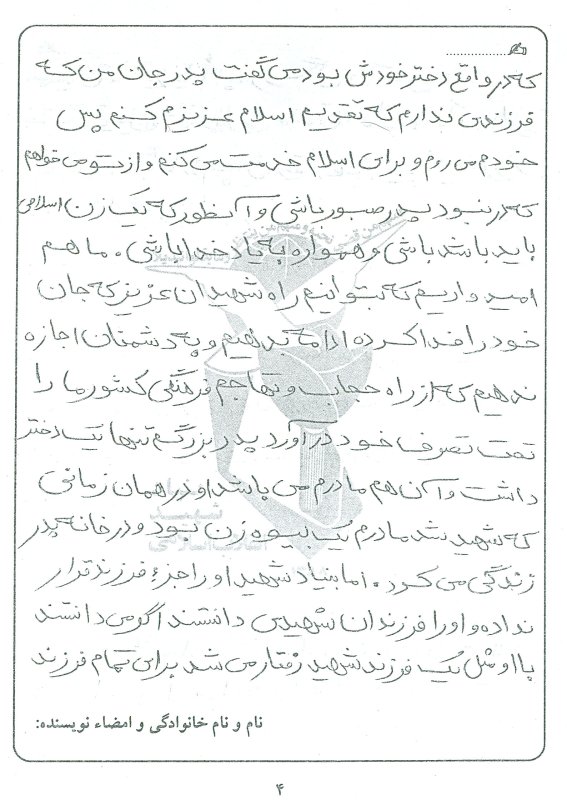 که در واقع دختر خودش بود می گفت پدر جان من که
فرزندی ندارم که تقدیم اسلام عزیزم کنم پس
خودم می روم و برای اسلام خدمت می کنم و از تو می خواهم
که در نبود پدر صبور باشی و آنطور که یک زن اسلامی
باید باشد باشی و همواره به یاد خدا باشی . ما هم
امیدواریم که بتوانیم راه شهیدان عزیز که جان
خود را فدا کرده ادامه بدهیم و به دشمنان اجازه
ندهیم که از راه حجاب و تهاجم فرهنگی کشور ما را
تحت تصرف خود در آورد پدر بزرگم تنها یک دختر
داشت و آن هم مادرم می باشد او در همان زمانی
که شهید شد مادرم یک بیوه زن بود و در خانه پدر
زندگی می کرد . اما بنیاد شهید او را جزء فرزند قرار
نداده و او را فرزندان شهید می دانستند اگر می دانستند
با او مثل یک فرزند شهید رفتار می شد برای تمام فرزند
نام و نام خانوادگی و امضاء نویسنده:
۴